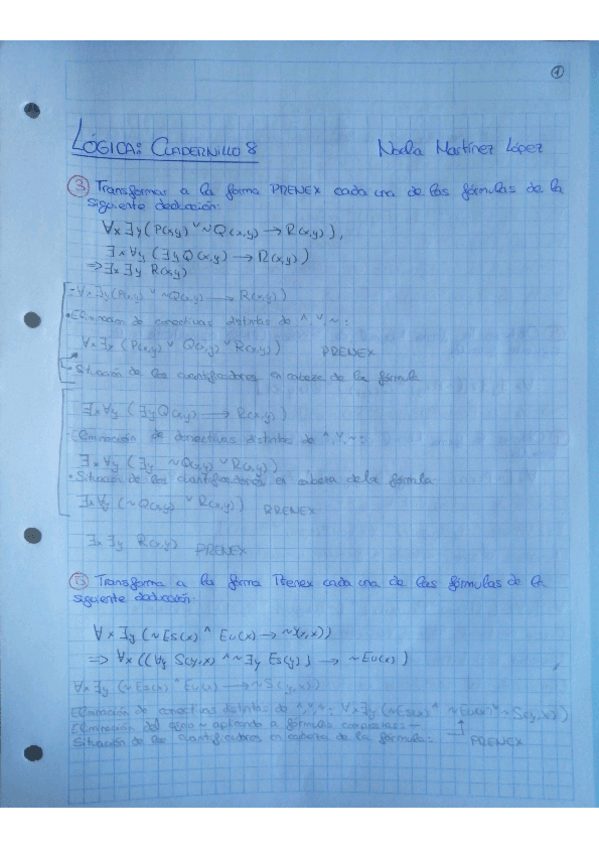 1
LÓGICA: CUADERNILLO 8 Nadia Martínez López
3 Transformar a la forma PRENEX cada una de las fórmulas de la
siguiente deducción:
∀x∃y(P(x,y) ∨ ~Q(x,y) → R(x,y)),
∃x∀y(∃yQ(x,y) → R(x,y))
⇒ ∃x∃y R(x,y)
- ∀x∃y(P(x,y) ∨ ~Q(x,y) → R(x,y))
• Eliminación de conectivas distintas de ∧,∨,~:
(P(x,y) ∨ Q(x,y) ∨ R(x,y)) PRENEX
- Situación de los cuantificadores en cabeza de la fórmula
∃x∀y (∃yQ(x,y) → R(x,y))
Eliminación de conectivas distintas de ∧,∨,~:
∃x∀y (∃y ~Q(x,y) ∨ R(x,y))
• Situación de los cuantificadores en cabeza de la fórmula
∃x∀y (~Q(x,y) ∨ R(x,y)) PRENEX
∃x∃y R(x,y) PRENEX
Transforma a la forma Prenex cada una de las fórmulas de la
siguiente deducción:
∀x∃y(~Es(x) ∧ Eu(x) →
⇒ ∀x((∀y S(y,x) ∧ ~∃y Es(y)) → ~Eu(x))
∀x∃y(~Es(x) ∧ Eu(x) → ~S(y,x))
Eliminación de conectivas distintas de ∧,∨,~: ∀x∃y(~Es(x)
Eliminación del signo ~ aplicando a fórmulas compuestas: —
Situación de los cuantificadores en cabeza de la fórmula: PRENEX